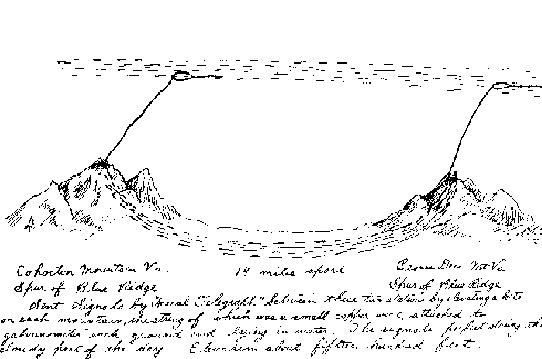 Cohocton Mountain Va.
Spur of Blue Ridge
18 miles apart
Va
Spur of Blue Ridge
Sent Signals by "Aerial Telegraph" between these two stations by floating a kite
on each mountain, the string of which was a small copper wire, attached to
"galvanometer" and ground coil lying in water. The signals perfect during the
Cloudy part of the day Elevation about fifteen hundred feet.